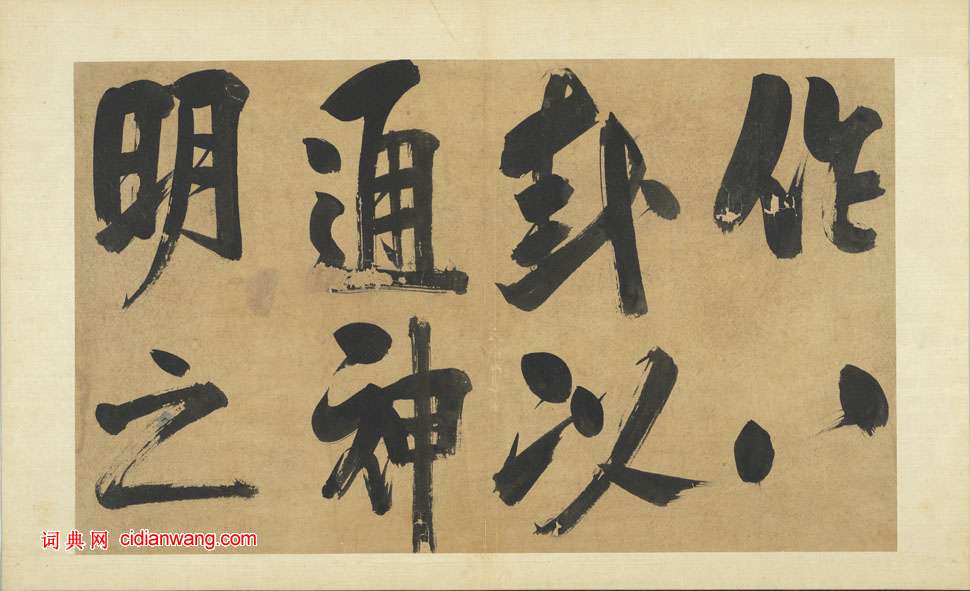 作八
卦以
通神
明之
词典网 cidianwang.com